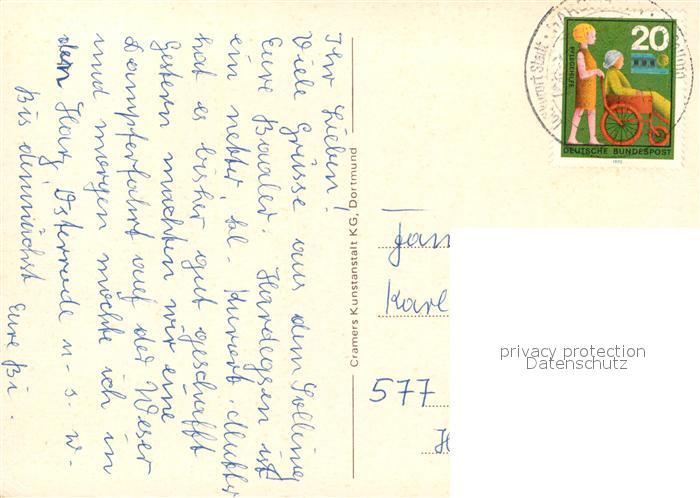 Ihr Lieben!
Viele Grüsse aus dem Solling
Eure Basler. Hardegsen ist
ein netter, kl. Kurort. Mutter
hat es bisher gut geschafft
Gestern machten wir eine
Dampferfahrt auf der Weser
und morgen möchte ich in
den Harz, Osterode u. s. w.
Bis demnächst Eure Bi.
Cramers Kunstanstalt KG, Dortmund
20
PFLEGEHILFE
DEUTSCHE BUNDESPOST
1970
Fam
Karl
577
privacy protection
Datenschutz